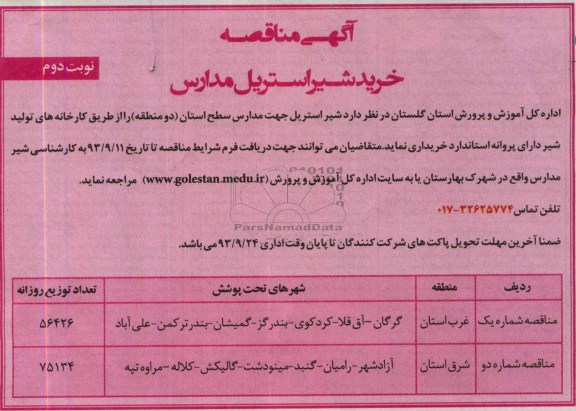 آگهی مناقصه
خرید شیر استریل مدارس
نوبت دوم
اداره کل آموزش و پرورش استان گلستان در نظر دارد شیر استریل جهت مدارس سطح استان (دو منطقه) را از طریق کارخانه های تولید
شیر دارای پروانه استاندارد خریداری نماید. متقاضیان می توانند جهت دریافت فرم شرایط مناقصه تا تاریخ ۹۳/۹/۱۱ به کارشناسی شیر
مدارس واقع در شهرک بهارستان یا به سایت اداره کل آموزش و پرورش (www.golestan.medu.ir) مراجعه نماید.
تلفن تماس ۳۲۶۲۵۷۷۴-۰۱۷
ضمنا آخرین مهلت تحویل پاکت های شرکت کنندگان تا پایان وقت اداری ۹۳/۹/۲۴ می باشد.
ردیف منطقه شهرهای تحت پوشش تعداد توزیع روزانه
مناقصه شماره یک غرب استان گرگان –آق قلا-کردکوی-بندرگز-گمیشان-بندرترکمن-علی آباد ۵۶۴۲۶
مناقصه شماره دو شرق استان آزادشهر-رامیان-گنبد-مینودشت-گالیکش-کلاله-مراوه تپه ۷۵۱۳۴
ParsNamadData